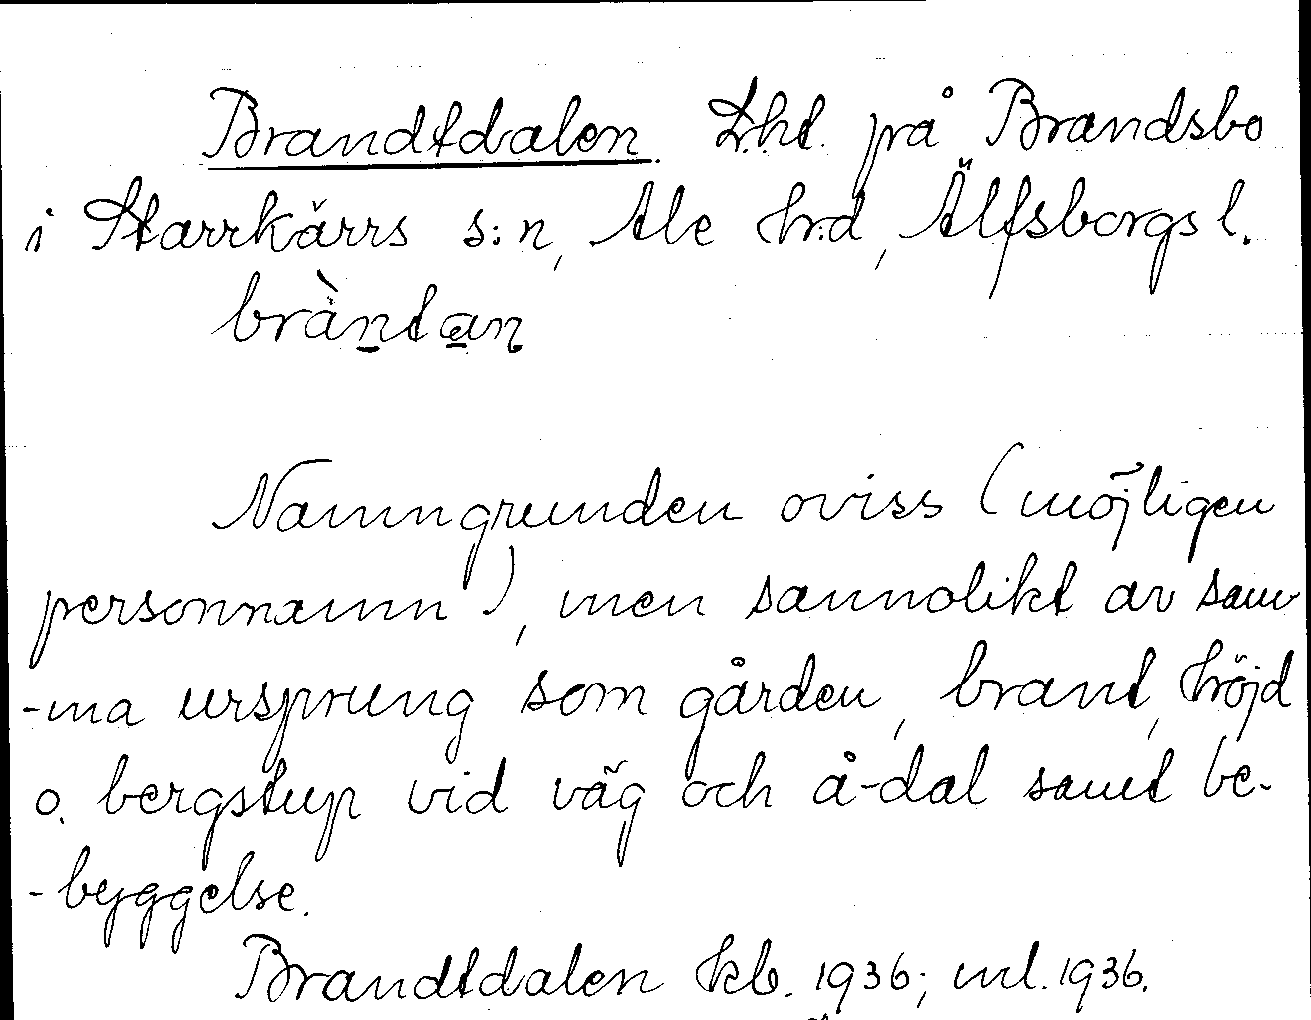 Brandtdalen. Lht. på Brandsbo
i Starrkärrs s:n, Ale hrd, Älfsborgs l.
bràntan
Namngrunden oviss (möjligen
personnamn), men sannolikt av sam-
-ma ursprung som gården, brant, höjd
o. bergstup vid väg och å-dal samt be-
-byggelse.
Brandtdalen kb. 1936; ml. 1936.